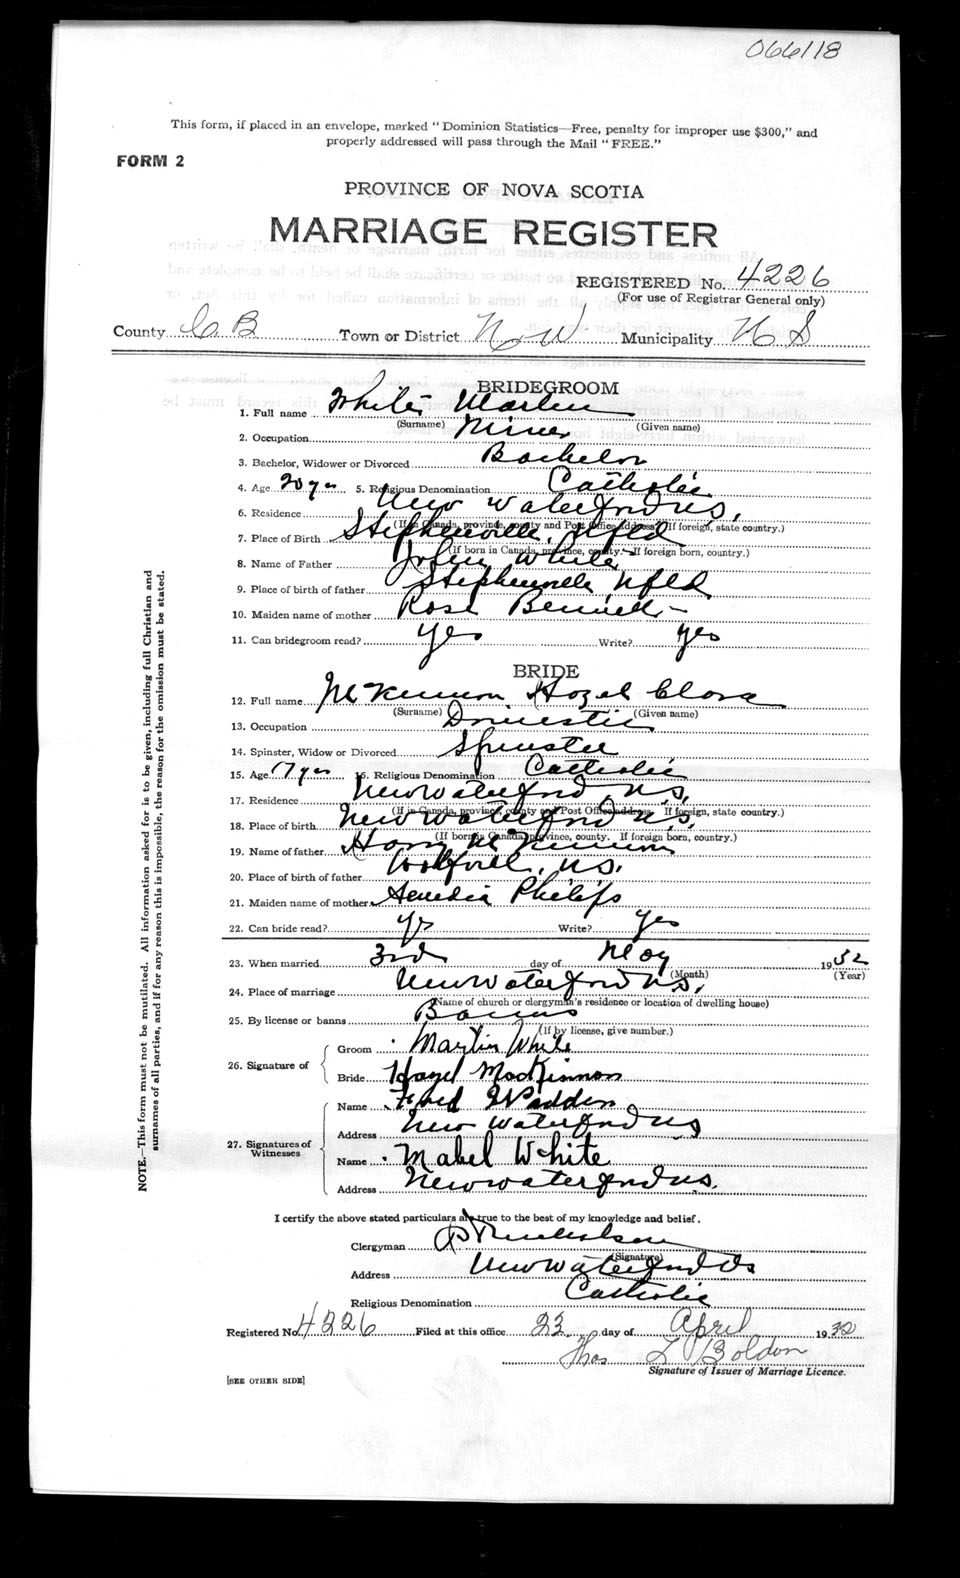 066118
This form, if placed in an envelope, marked "Dominion Statistics—Free, penalty for improper use $300," and
properly addressed will pass through the Mail "FREE."
FORM 2
PROVINCE OF NOVA SCOTIA
MARRIAGE REGISTER
REGISTERED No. 4226
(For use of Registrar General only)
County C. B Town or District N-W Municipality N S
BRIDEGROOM
1. Full name White Martin
(Surname) (Given name)
2. Occupation Miner
3. Bachelor, Widower or Divorced Bachelor
4. Age 20 yrs 5. Religious Denomination Catholic
6. Residence New Waterford N.S.
(If in Canada, province, county and Post Office Address. If foreign, state country.)
7. Place of Birth Stephenville, Nfld
(If born in Canada, province, county. If foreign born, country.)
8. Name of Father John White
9. Place of birth of father Stephenville, Nfld
10. Maiden name of mother Rose Bennett
11. Can bridegroom read? Yes Write? Yes
BRIDE
12. Full name McKinnon Hazel Clara
(Surname) (Given name)
13. Occupation Domestic
14. Spinster, Widow or Divorced Spinster
15. Age 17 yrs 16. Religious Denomination Catholic
17. Residence New Waterford, N.S.
(If in Canada, province, county and Post Office address. If foreign, state country.)
18. Place of birth New Waterford N.S.
(If born in Canada, province, county. If foreign born, country.)
19. Name of father Harry McKinnon
20. Place of birth of father N.S.
21. Maiden name of mother Philips
22. Can bride read? Yes Write? Yes
23. When married 3rd day of May 1932
(Month) (Year)
24. Place of marriage New Waterford N.S.
(Name of church or clergyman's residence or location of dwelling house)
25. By license or banns Banns
(If by license, give number.)
26. Signature of Groom Martin White
Bride Hazel MacKinnon
27. Signatures of Witnesses Name Fred Wadden
Address New Waterford N S
Name Mabel White
Address New Waterford N.S.
I certify the above stated particulars are true to the best of my knowledge and belief.
Clergyman
(Signature)
Address New Waterford N S
Religious Denomination Catholic
Registered No. 4226 Filed at this office 23 day of April 1932
Thos L Boldon
Signature of Issuer of Marriage Licence.
[SEE OTHER SIDE]
NOTE.—This form must not be mutilated. All information asked for is to be given, including full Christian and
surnames of all parties, and if for any reason this is impossible, the reason for the omission must be stated.